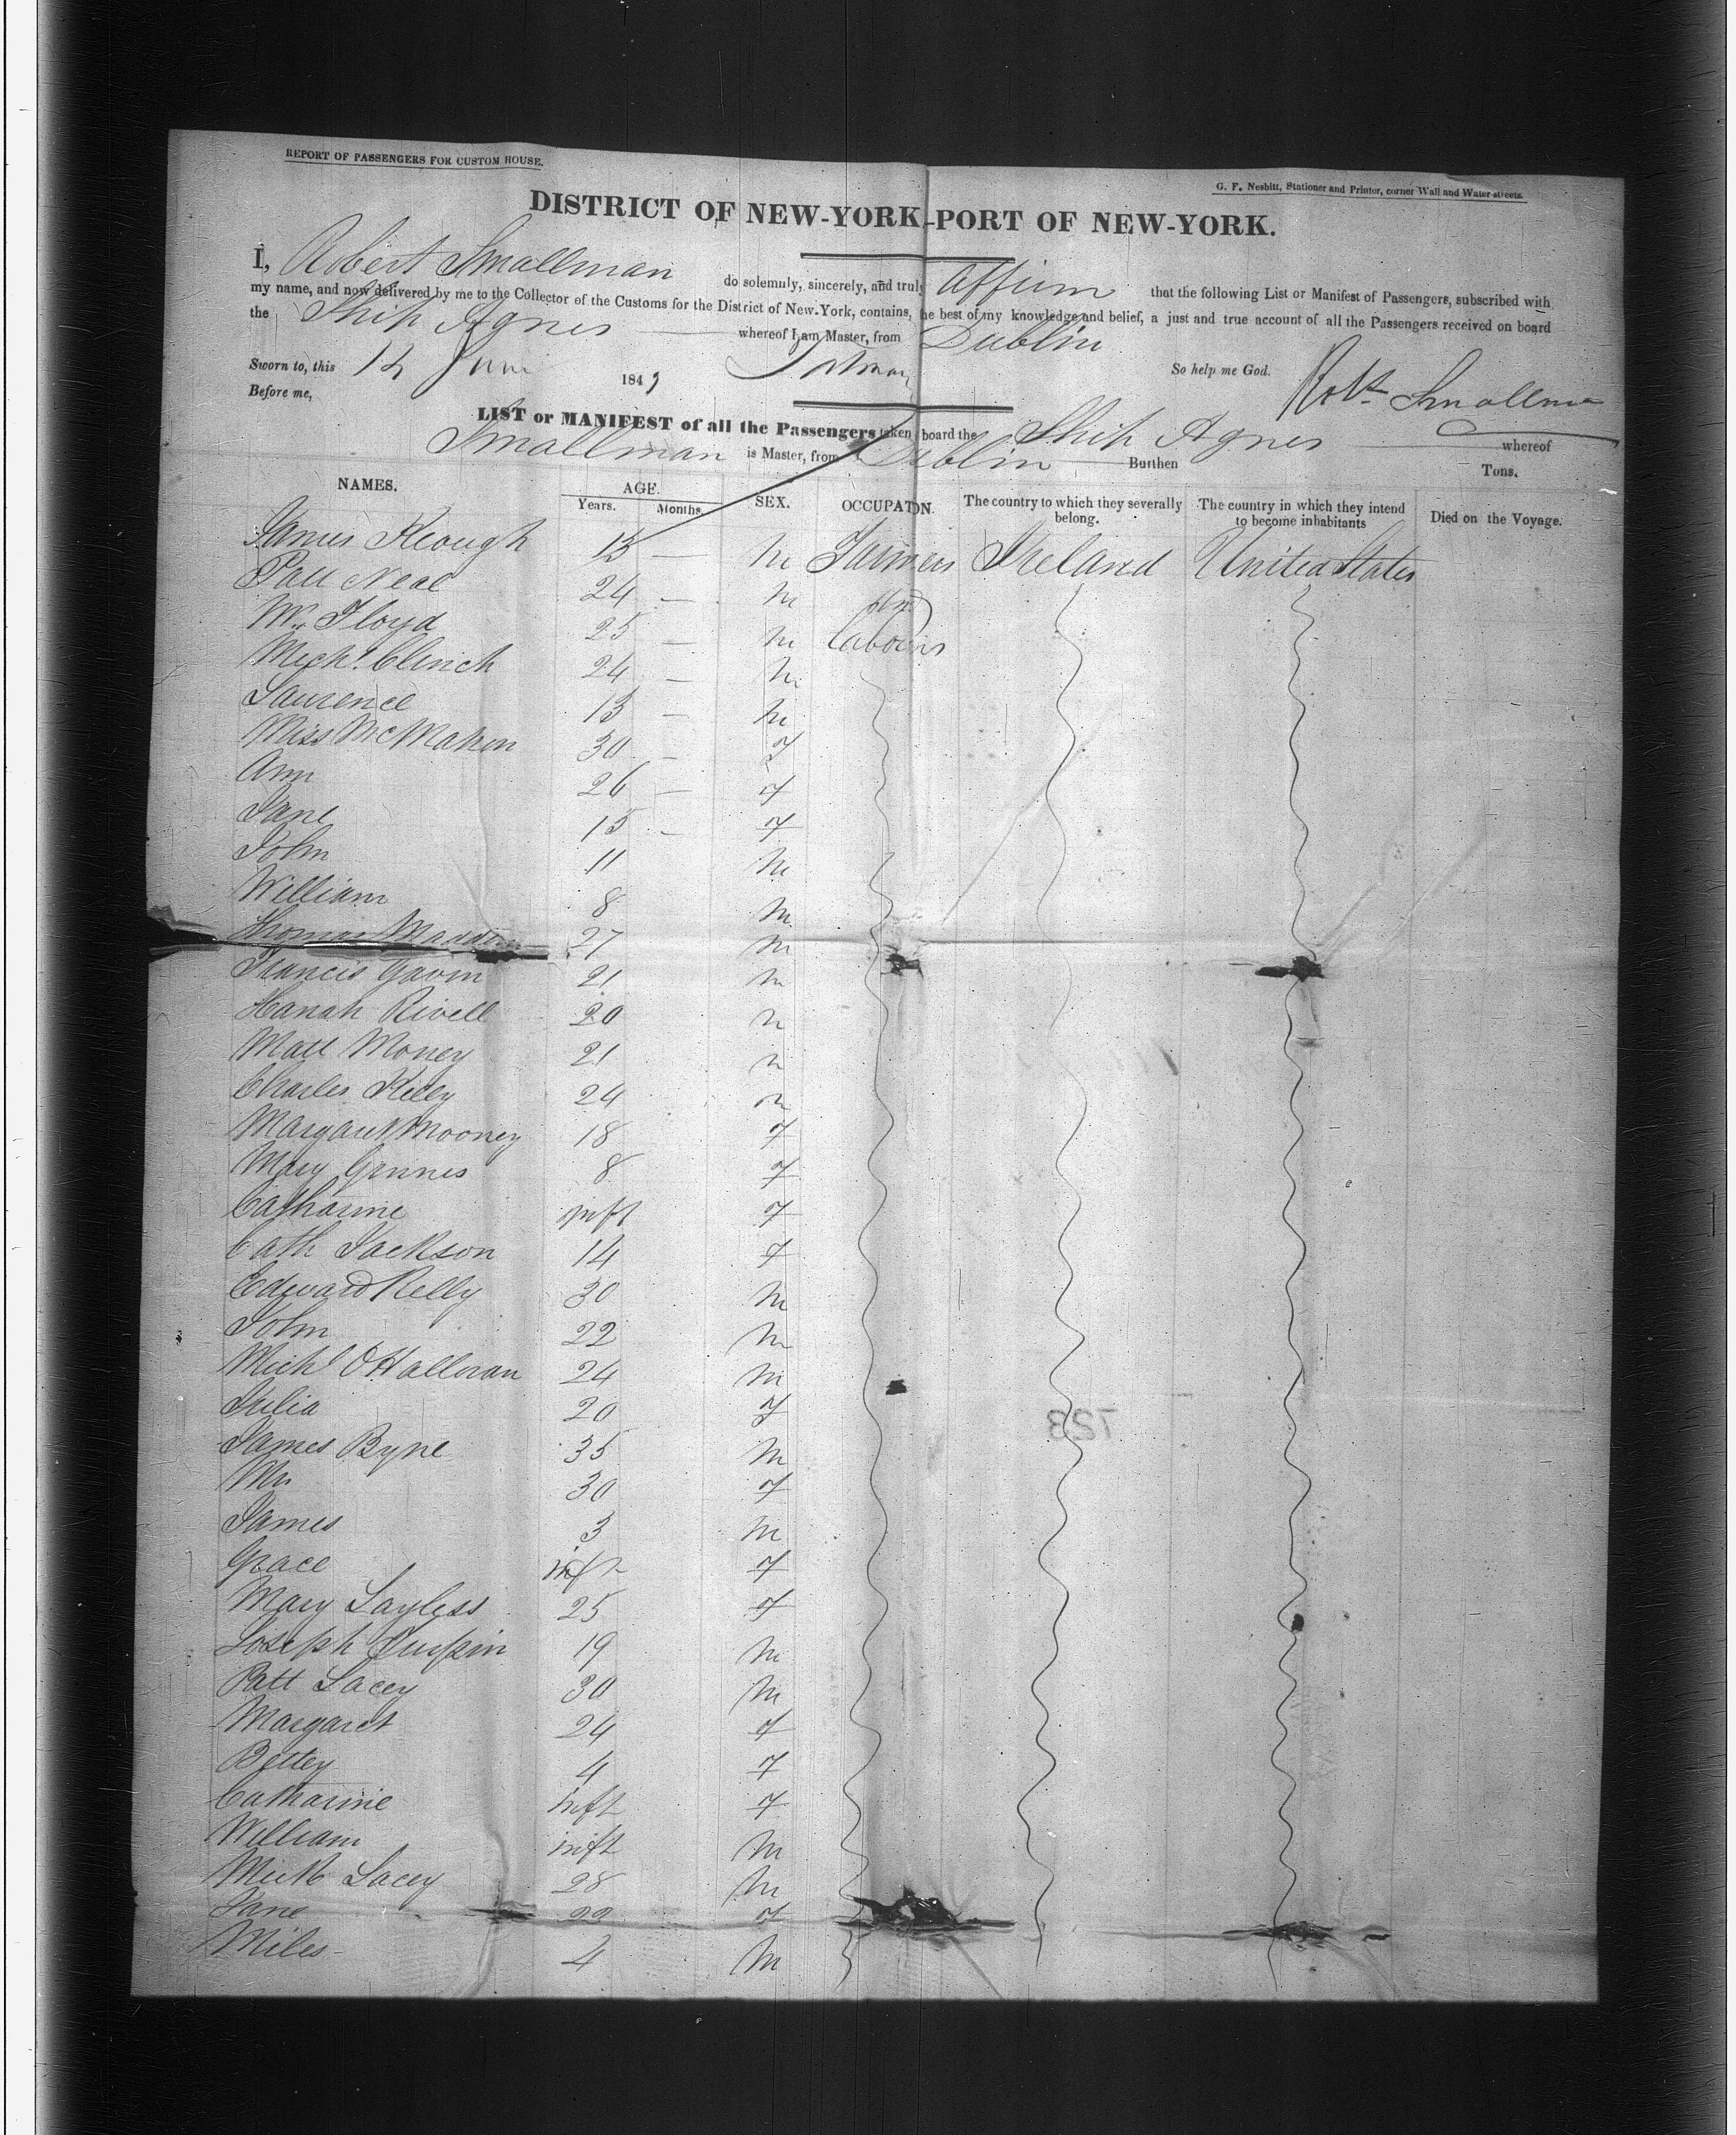 REPORT OF PASSENGERS FOR CUSTOM HOUSE.
G. F. Nesbitt, Stationer and Printer, corner Wall and Water-streets.
DISTRICT OF NEW-YORK-PORT OF NEW-YORK.
I, Robert Smallman do solemnly, sincerely, and truly affirm that the following List or Manifest of Passengers, subscribed with
my name, and now delivered by me to the Collector of the Customs for the District of New-York, contains, the best of my knowledge and belief, a just and true account of all the Passengers received on board
the Ship Agnes whereof I am Master, from Dublin
Sworn to, this 12 June 1849 So help me God. Robt Smallman
Before me,
LIST or MANIFEST of all the Passengers taken board the Ship Agnes whereof
Smallman is Master, from Dublin Burthen Tons.
NAMES. AGE. SEX. OCCUPATON. The country to which they severally belong. The country in which they intend to become inhabitants Died on the Voyage.
Years. Months.
James Keough 13 — m Farmers Ireland United States
Patt Neal 24 — m
Wm Floyd 25 — m labourers
Mich. Clinch 24 — m
Laurence 13 — m
Miss McMahon 30 — f
Ann 26 — f
Jane 15 — f
John 11 m
William 8 m
Thomas Madd 27 m
Francis Gavin 21 m
Hanah Rivell 20 m
Matt Money 21 m
Charles Kiley 24 m
Margaret Mooney 18 f
Mary Ginnis 8 f
Catharine inft f
Cath Jackson 14 f
Edward Kelly 30 m
John 22 m
Michl O'Halloran 24 m
Julia 20 f
James Byne 35 m
Mrs 30 f
James 3 m
Grace inft f
Mary Layless 25 f
Joseph Turpin 19 m
Patt Lacey 30 m
Margaret 24 f
Bettey 4 f
Catharine inft f
William inft m
Mick Lacey 28 m
Jane 22 f
Miles 4 m